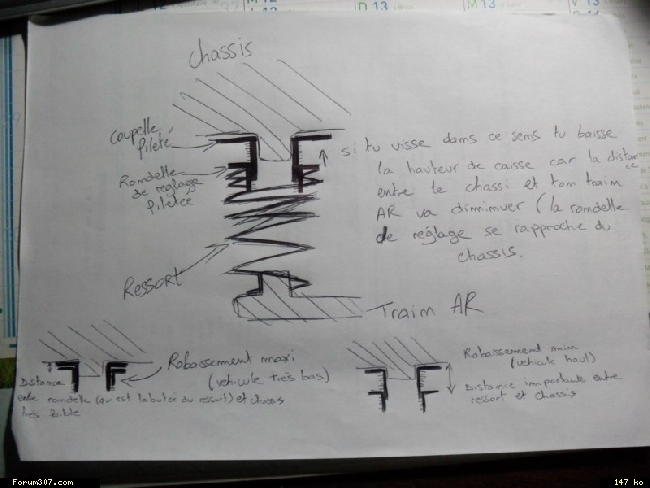 chassis
Coupelle
Pileté
Romdelle
de réglage
piletée
si tu visse dams ce sems tu baisse
la hauteur de caisse car la distance
entre le chassi et tom traim
AR va dimimuer ( la romdelle
de réglage se rapproche du
chassis.
Ressort
Traim AR
Rabaissement maxi
(véhicule très bas)
Distance
entre romdelle (qui est la butée du ressort) et chassis
très faible
Rabaissement mim
(véhicule haut)
Distamce importamte entre
ressort et chassis
Forum307.com
147 ko